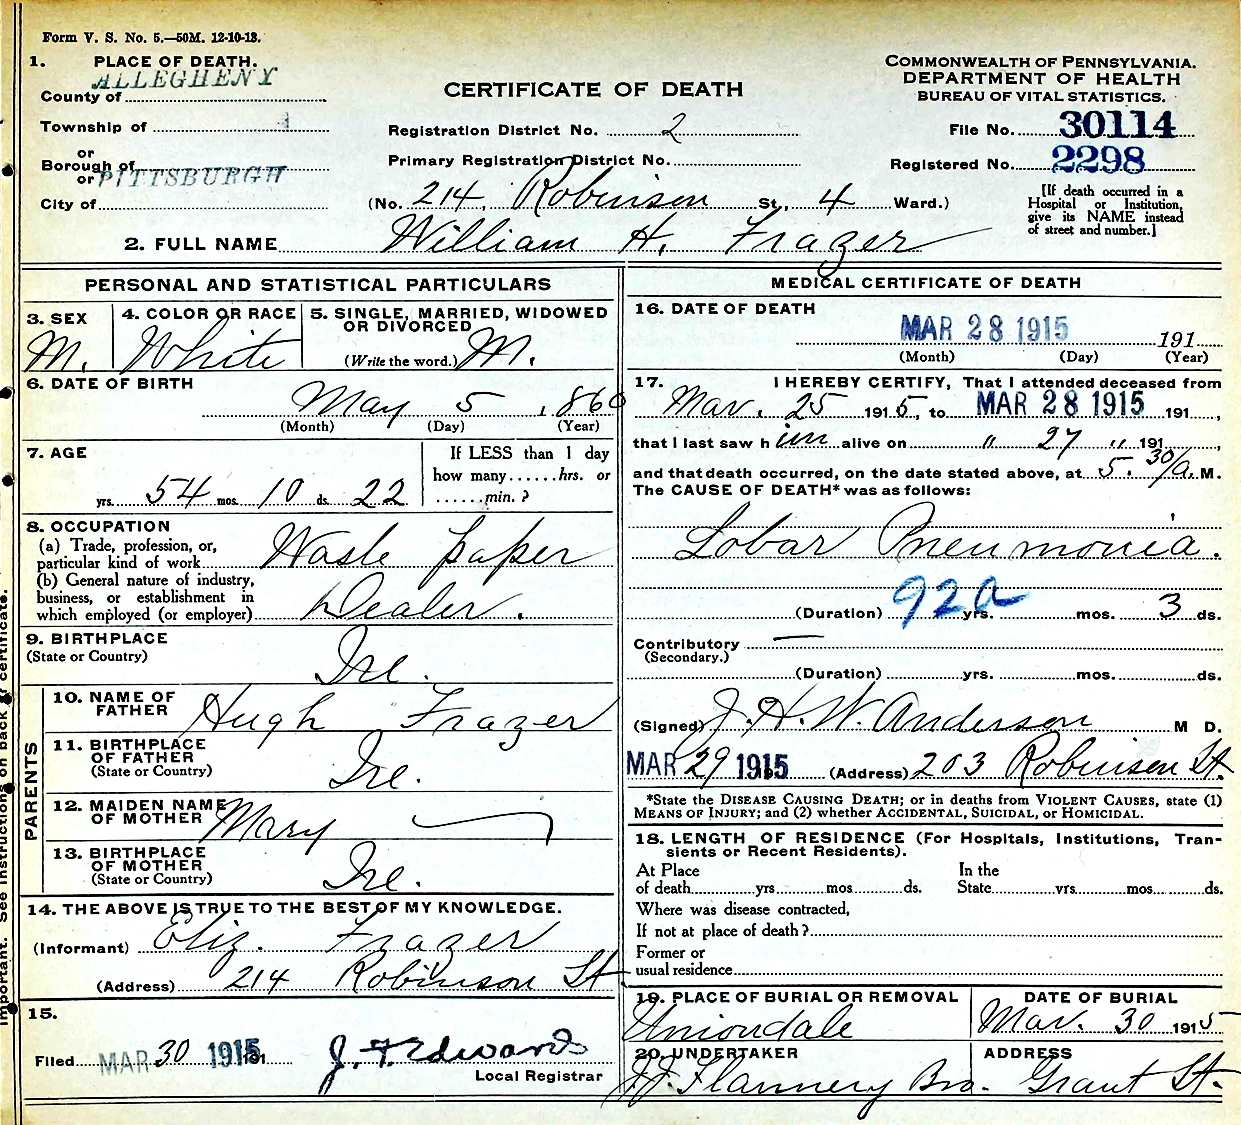 Form V. S. No. 5.—50M. 12-10-13.
1. PLACE OF DEATH.
County of ALLEGHENY
Township of
or
Borough of
or PITTSBURGH
City of
CERTIFICATE OF DEATH
Registration District No. 2
Primary Registration District No.
(No. 214 Robinson St., 4 Ward.)
COMMONWEALTH OF PENNSYLVANIA.
DEPARTMENT OF HEALTH
BUREAU OF VITAL STATISTICS.
File No. 30114
Registered No. 2298
[If death occurred in a
Hospital or Institution,
give its NAME instead
of street and number.]
2. FULL NAME William H. Frazer
PERSONAL AND STATISTICAL PARTICULARS
3. SEX M.
4. COLOR OR RACE White
5. SINGLE, MARRIED, WIDOWED
OR DIVORCED
(Write the word.) M.
6. DATE OF BIRTH
May 5, 1860
(Month) (Day) (Year)
7. AGE
54 yrs. 10 mos. 22 ds.
If LESS than 1 day
how many......hrs. or
......min. ?
8. OCCUPATION
(a) Trade, profession, or,
particular kind of work Waste paper
(b) General nature of industry,
business, or establishment in
which employed (or employer) Dealer.
9. BIRTHPLACE
(State or Country) Ire.
PARENTS
10. NAME OF
FATHER Hugh Frazer
11. BIRTHPLACE
OF FATHER
(State or Country) Ire.
12. MAIDEN NAME
OF MOTHER Mary —
13. BIRTHPLACE
OF MOTHER
(State or Country) Ire.
14. THE ABOVE IS TRUE TO THE BEST OF MY KNOWLEDGE.
(Informant) Eliz. Frazer
(Address) 214 Robinson St
15.
Filed MAR 30 1915 191 J. F. Edwards
Local Registrar
MEDICAL CERTIFICATE OF DEATH
16. DATE OF DEATH
MAR 28 1915 191
(Month) (Day) (Year)
17. I HEREBY CERTIFY, That I attended deceased from
Mar. 25 1915, to MAR 28 1915 191,
that I last saw him alive on " 27 " 191,
and that death occurred, on the date stated above, at 5.30/a. M.
The CAUSE OF DEATH* was as follows:
Lobar Pneumonia.
92a
(Duration) yrs. mos. 3 ds.
Contributory —
(Secondary.)
(Duration) yrs. mos. ds.
(Signed) J. H. W. Anderson M D.
MAR 29 1915 (Address) 203 Robinson St.
*State the DISEASE CAUSING DEATH; or in deaths from VIOLENT CAUSES, state (1)
MEANS OF INJURY; and (2) whether ACCIDENTAL, SUICIDAL, or HOMICIDAL.
18. LENGTH OF RESIDENCE (For Hospitals, Institutions, Tran-
sients or Recent Residents).
At Place In the
of death yrs. mos. ds. State yrs. mos. ds.
Where was disease contracted,
If not at place of death?
Former or
usual residence
19. PLACE OF BURIAL OR REMOVAL DATE OF BURIAL
Uniondale Mar. 30 1915
20. UNDERTAKER ADDRESS
J. J. Flannery Bro. Grant St.
important. See instructions on back of certificate.